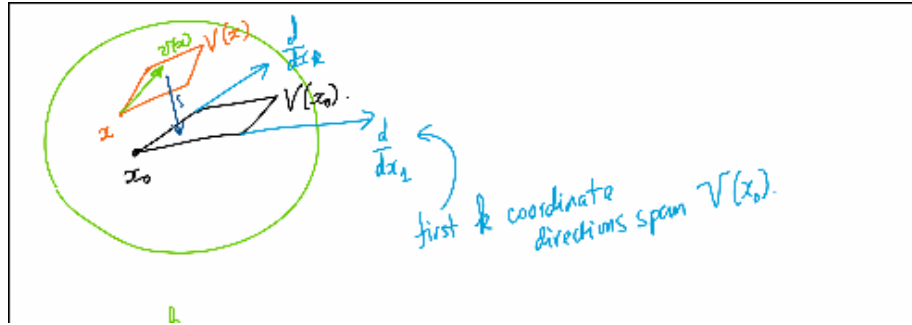 v(x) V(x)
d
dx_k
V(x_0).
x
x_0
d
dx_1
first k coordinate
directions span V(x_0).
k